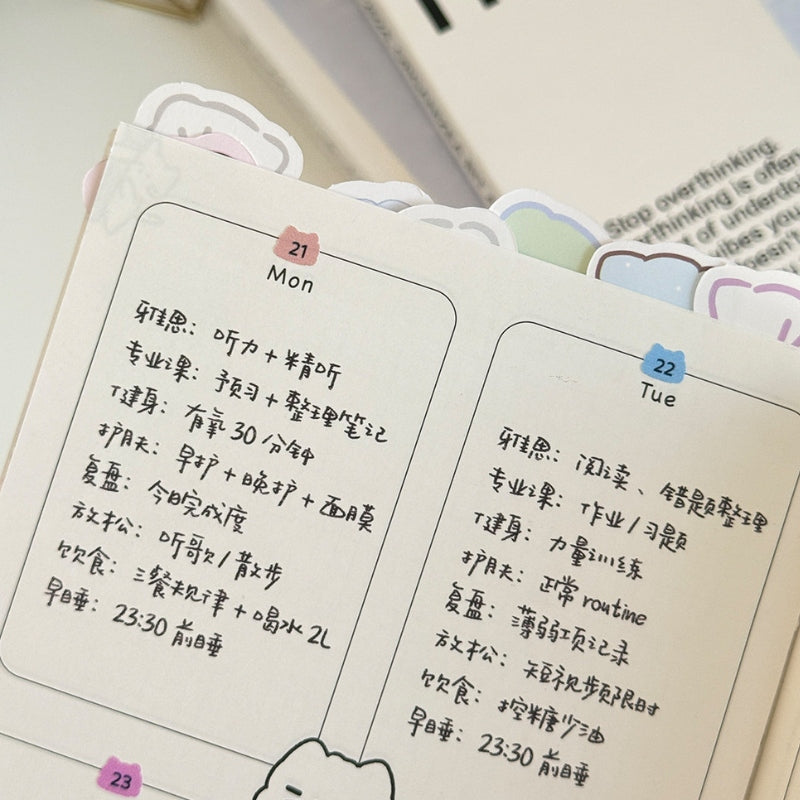 Stop overthinking.
thinking is often
of underdo
vibes you
doesn't
21
Mon
雅思：听力+精听
专业课：预习+整理笔记
健身：有氧30分钟
护肤：早护+晚护+面膜
复盘：今日完成度
放松：听歌/散步
饮食：三餐规律+喝水2L
早睡：23:30前睡
22
Tue
雅思：阅读、错题整理
专业课：作业/习题
健身：力量训练
护肤：正常routine
复盘：薄弱项记录
放松：短视频限时
饮食：控糖少油
早睡：23:30前睡
23